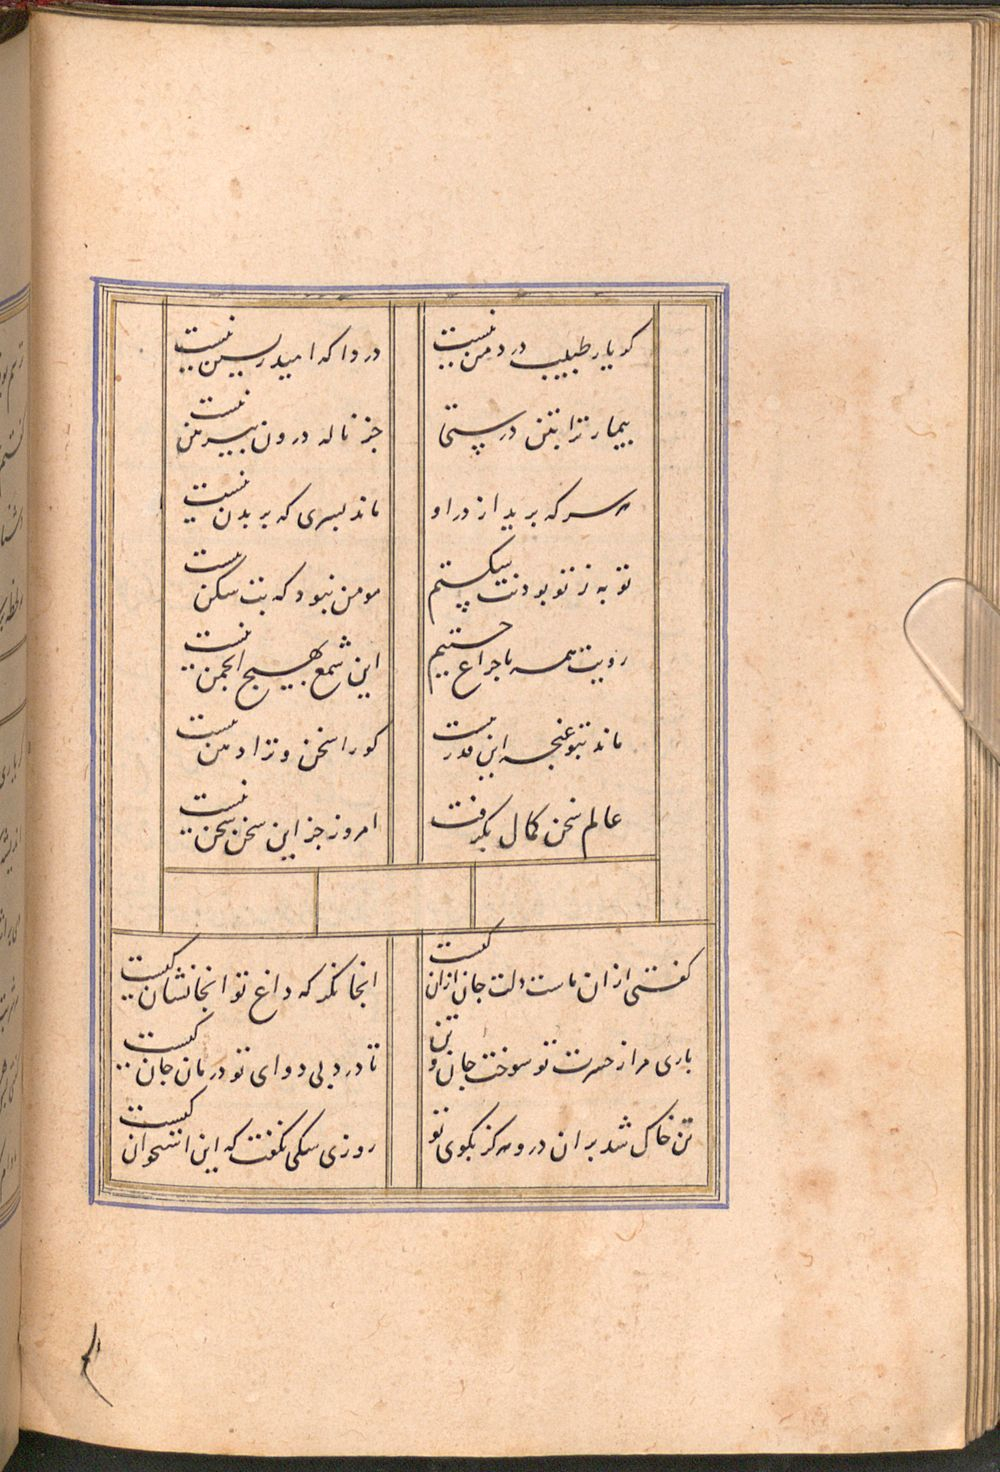 گر یار طبیب درد من نیست
دردا که امید زیستن نیست
بیمار ترا بتن درستیها
جز ناله درون پیرهن نیست
هر سر که برید از در او
ماند بسری که بر بدن نیست
توبه ز تو بود بت شکستم
مومن نبود که بت شکن نیست
رویت همه با چراغ جستیم
این شمع بهیچ انجمن نیست
ماند بتو غنچه این قدر هست
کو را سخن و ترا دهن نیست
عالم سخن کمال بگرفت
امروز جز این سخن سخن نیست
گفتی ازان ماست دلت جان ازان کیست
انجا نگر که داغ تو انجا نشان کیست
باری مرا ز حسرت تو سوخت جان و تن
تا درد بی دوای تو درمان جان کیست
تن خاک شد بران در و هرگز بکوی تو
روزی سگی نگفت که این استخوان کیست